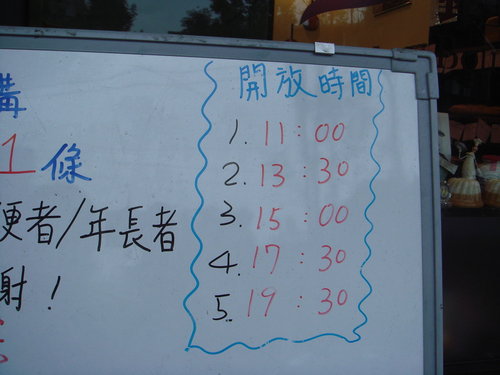 開放時間
1. 11:00
2. 13:30
3. 15:00
4. 17:30
5. 19:30
購
1 條
便者/年長者
謝!